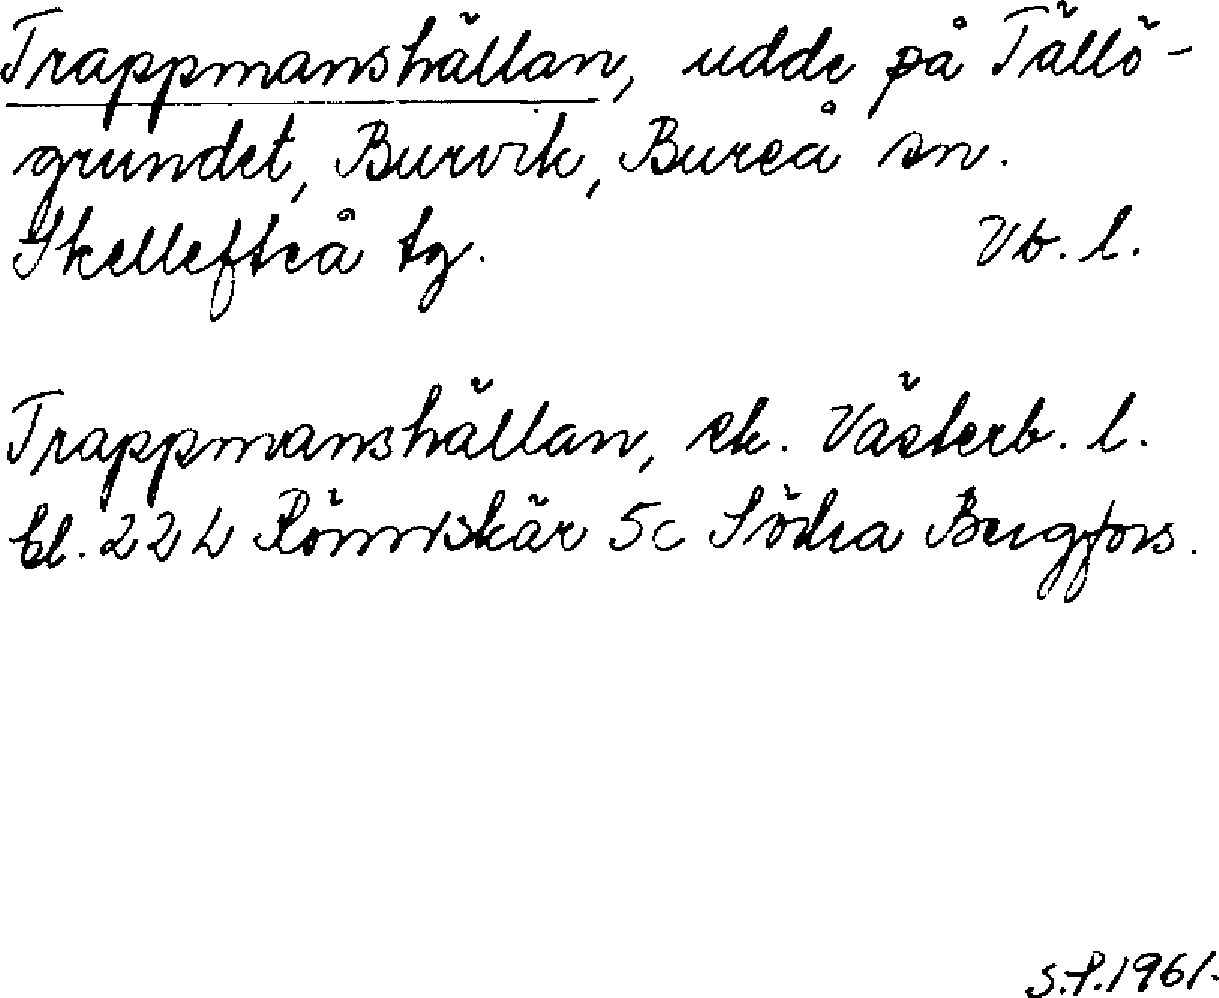 Trappmanshällan, udde på Tällö-
grundet, Burvik, Bureå sn.
Skellefteå tg. Vb. l.
Trappmanshällan, ek. Västerb. l.
bl. 22 L Rönnskär 5c Södra Bergfors.
S.P. 1961.